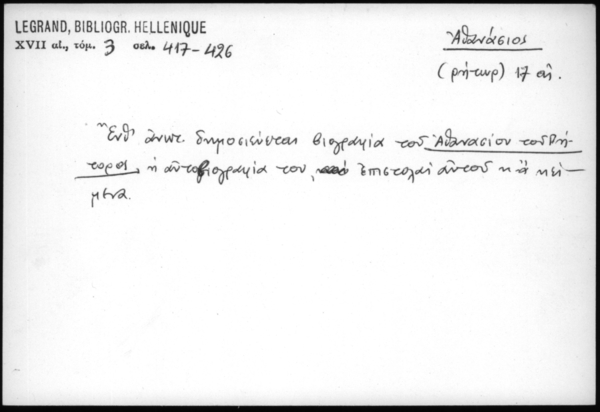 LEGRAND, BIBLIOGR. HELLENIQUE
XVII αἰ., τόμ. 3 σελ. 417-426
Ἀθανάσιος
(ρήτωρ) 17 αἰ.
Ἔνθ' ἀνωτ. δημοσιεύεται βιογραφία τοῦ Ἀθανασίου τοῦ Ρή-
τορος, ἡ αὐτοβιογραφία του, ἐπιστολαὶ αὐτοῦ κ ἄ κεί-
μενα.